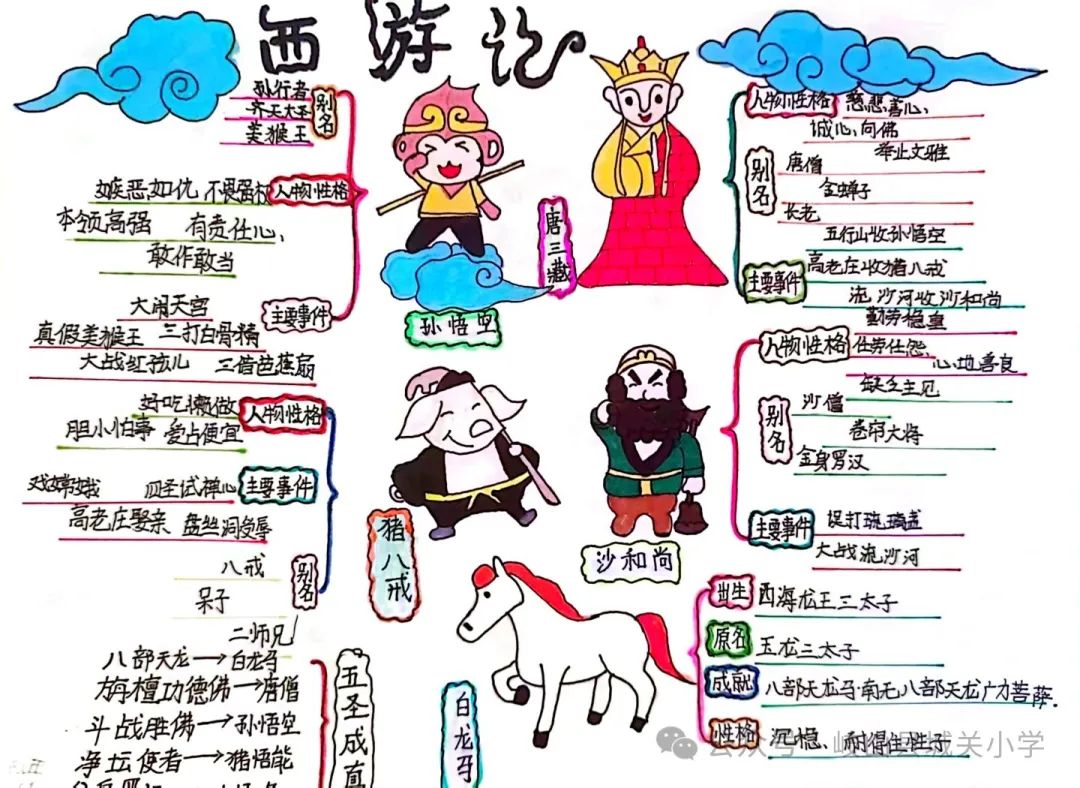 西游记
孙行者
齐天大圣
美猴王
别名
嫉恶如仇 不畏强权
人物性格
本领高强 有责任心、
敢作敢当
大闹天宫
主要事件
真假美猴王 三打白骨精
大战红孩儿 三借芭蕉扇
孙悟空
唐三藏
人物性格
慈悲善心、
诚心向佛
举止文雅
别名
唐僧
金蝉子
长老
五行山收孙悟空
主要事件
高老庄收猪八戒
流沙河收沙和尚
好吃懒做
人物性格
胆小怕事 爱占便宜
戏嫦娥 四圣试禅心
主要事件
高老庄娶亲 盘丝洞受辱
八戒
别名
呆子
二师兄
猪八戒
沙和尚
勤劳稳重
人物性格
任劳任怨、
心地善良
缺乏主见
别名
沙僧
卷帘大将
金身罗汉
主要事件
误打琉璃盏
大战流沙河
八部天龙→白龙马
旃檀功德佛→唐僧
斗战胜佛→孙悟空
净坛使者→猪悟能
五圣成真
白龙马
出生
西海龙王三太子
原名
玉龙三太子
成就
八部天龙马·南无八部天龙广力菩萨.
性格
沉稳、耐得住性子
公众号·岐山县城关小学